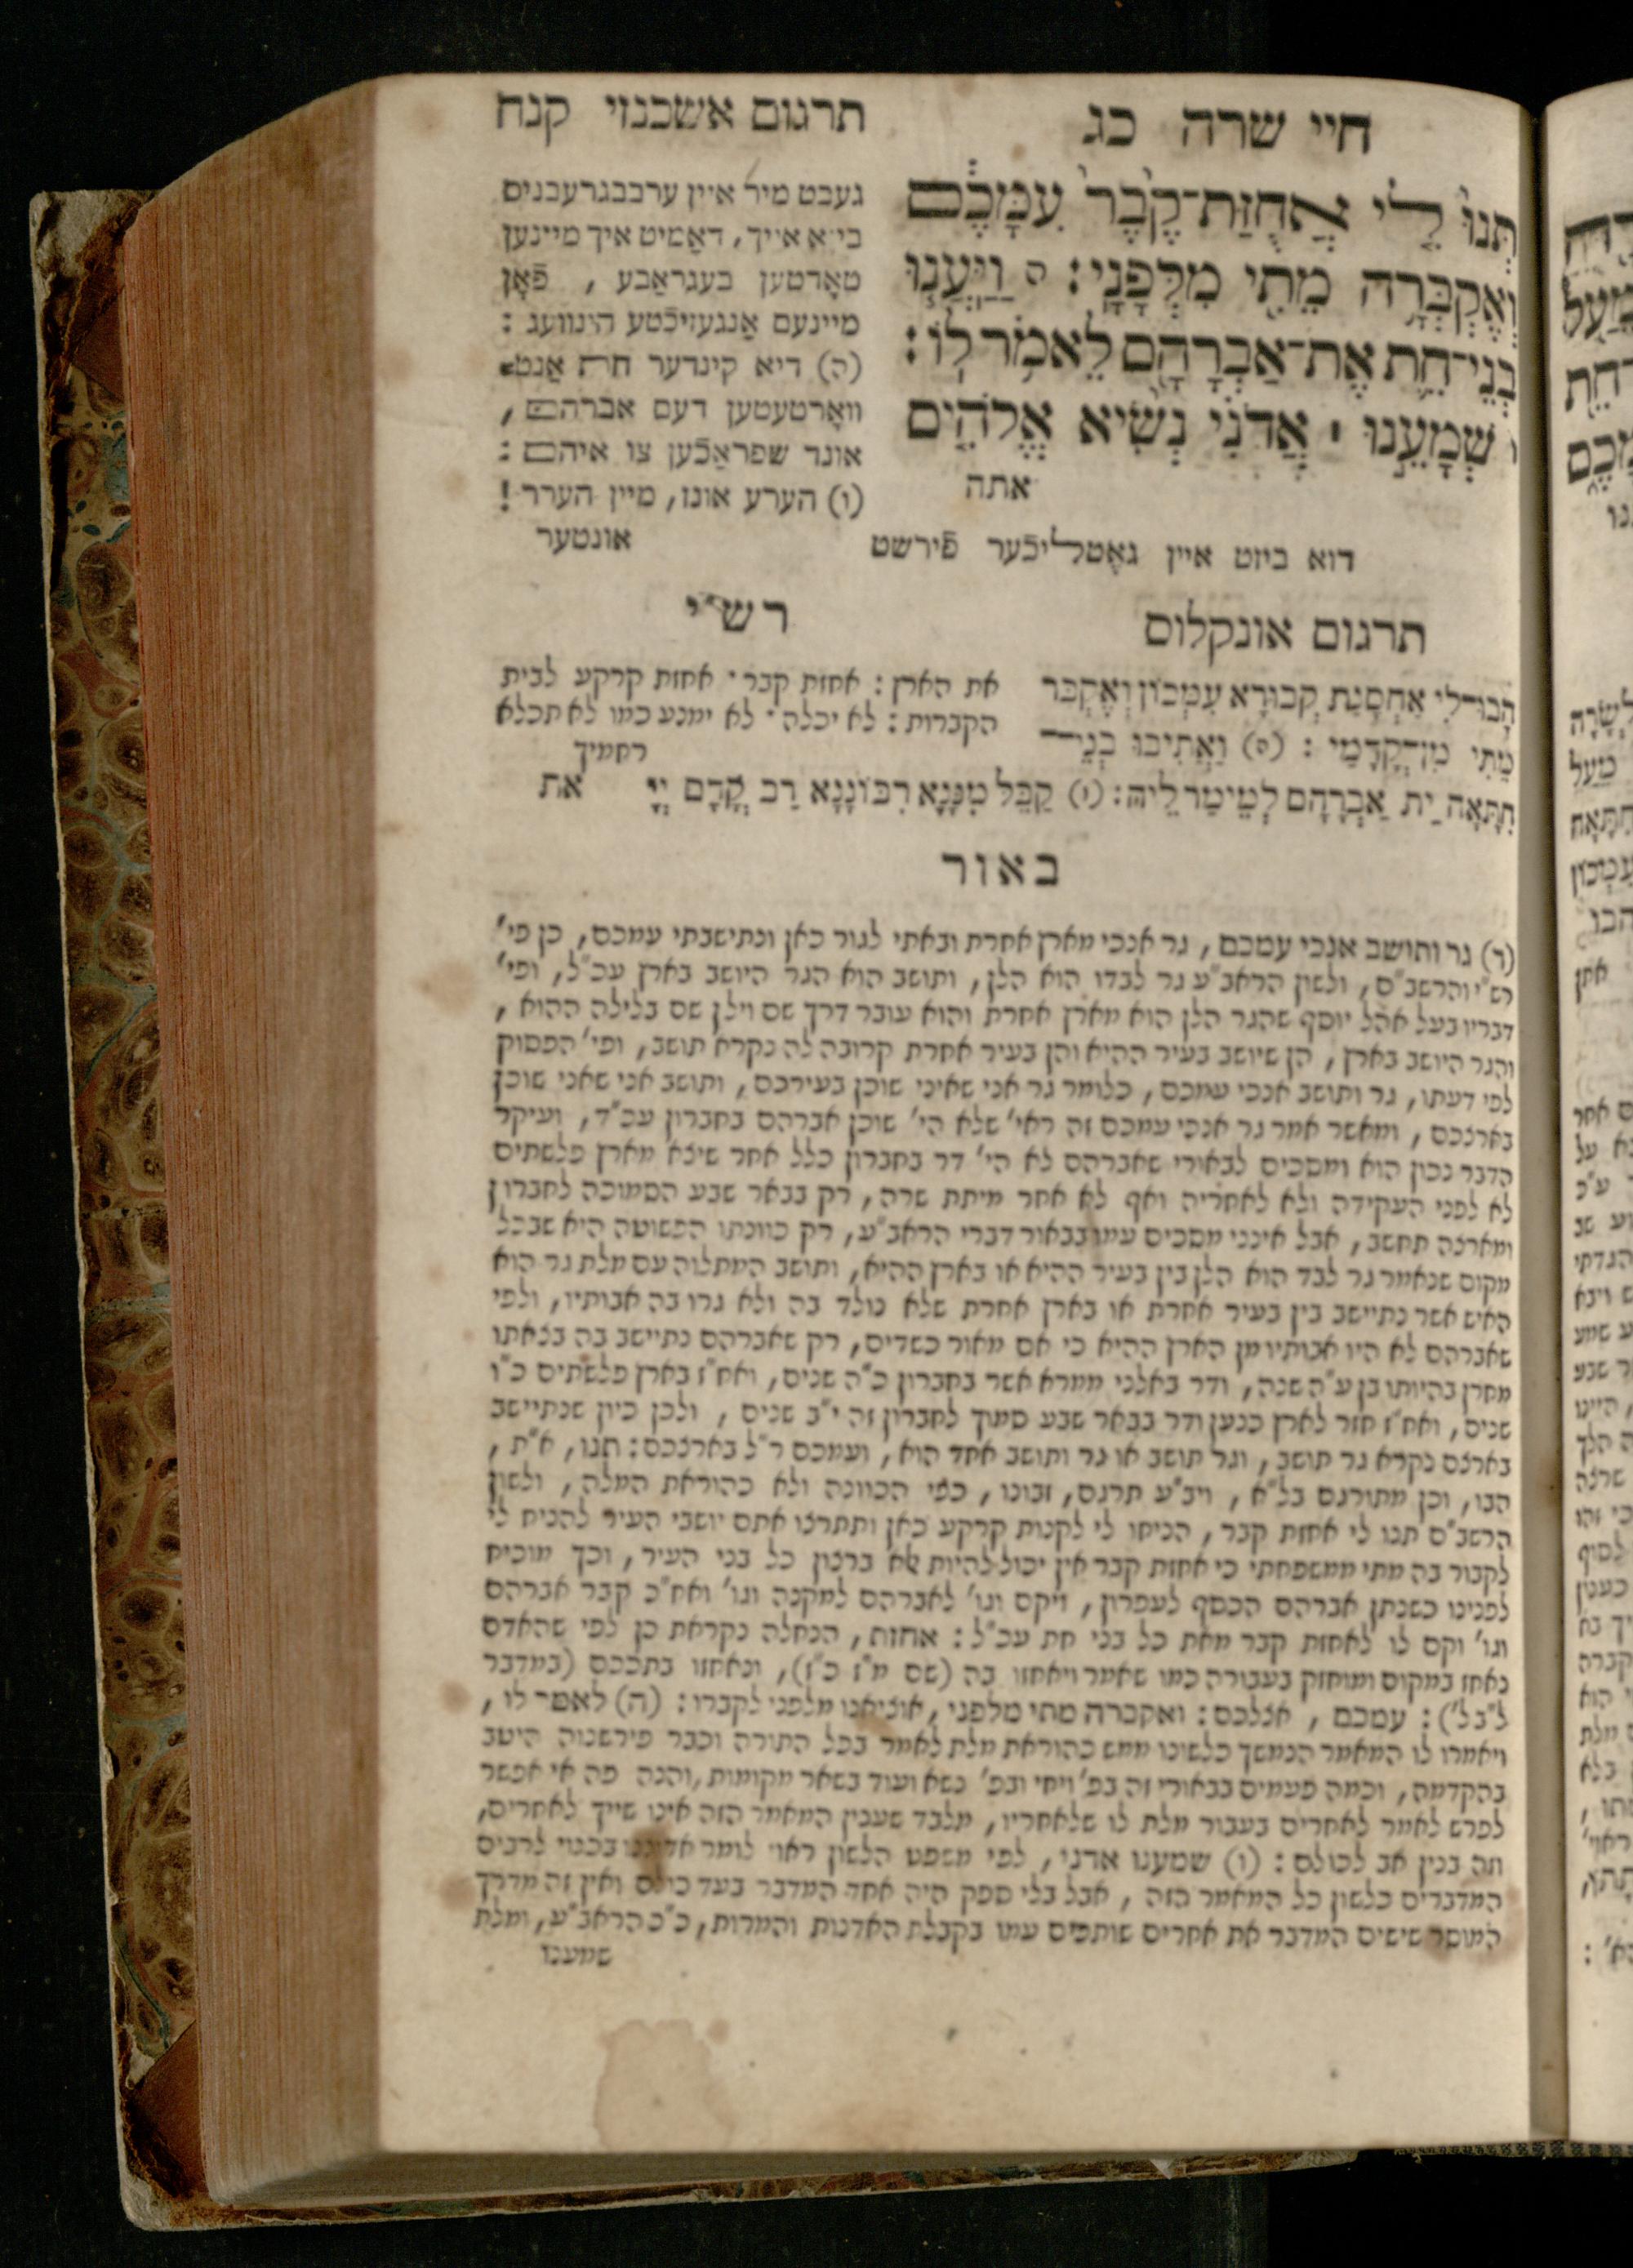 חיי שרה כג
תרגום אשכנזי קנח
תְּנוּ לִי אֲחֻזַּת־קֶבֶר עִמָּכֶם
וְאֶקְבְּרָה מֵתִי מִלְּפָנָי׃ ה וַיַּעֲנוּ
בְנֵי־חֵת אֶת־אַבְרָהָם לֵאמֹר לוֹ׃
ו שְׁמָעֵנוּ ׀ אֲדֹנִי נְשִׂיא אֱלֹהִים
אתה
געבט מיר איין ערבבגרעבניס
בייא אייך, דאַמיט איך מיינען
טאָדטען בעגראַבע, פֿאָן
מיינעם אַנגעזיכֿטע הינוועג:
(ה) דיא קינדער חת אַנט־
וואָרטעטען דעם אברהם,
אונד שפראַכֿען צו איהם:
(ו) הערע אונז, מיין הערר!
דוא ביזט איין געֶטטליכֿער פֿירשט
אונטער
תרגום אונקלוס
הָבוּ לִי אַחְסָנַת קְבוּרָא עִמְּכוֹן וְאֶקְבַּר
מֵתִי מִן־קֳדָמַי: (ה) וַאֲתִיבוּ בְנֵי־
חִתָּאָה יַת אַבְרָהָם לְמֵימַר לֵיהּ: (ו) קַבֵּל מִנָּנָא רִבּוֹנָנָא רַב קֳדָם יְיָ
את
רש״י
את הארץ: אחזת קבר· אחזת קרקע לבית
הקברות: לא יכלה· לא ימנע כמו לא תכלא
רחמיך
באור
(ד) גר ותושב אנכי עמכם, גר אנכי מארץ אחרת ובאתי לגור כאן ונתישבתי עמכם, כן פי'
רש"י והרשב"ם, ולשון הראב"ע גר לבדו הוא הלן, ותושב הוא הגר היושב בארץ עכ"ל, ופי'
דבריו בעל אהל יוסף שהגר הלן הוא מארץ אחרת והוא עובר דרך שם וילן שם בלילה ההוא,
והגר היושב בארץ, הן שיושב בעיר ההיא והן בעיר אחרת קרובה לה נקרא תושב, ופי' הפסוק
לפי דעתו, גר ותושב אנכי עמכם, כלומר גר אני שאיני שוכן בעירכם, ותושב אני שאני שוכן
בארצכם, ומאשר אמר גר אנכי עמכם זה ראי' שלא הי' שוכן אברהם בחברון עכ"ד, ועיקר
הדבר נכון הוא ומסכים לבאורי שאברהם לא הי' דר בחברון כלל אחר שיצא מארץ פלשתים
לא לפני העקידה ולא לאחריה ואף לא אחר מיתת שרה, רק בבאר שבע הסמוכה לחברון
ומארצה תחשב, אבל אינני מסכים עמו בבאור דברי הראב"ע, רק כוונתו הפשוטה היא שבכל
מקום שנאמר גר לבד הוא הלן בין בעיר ההיא או בארץ ההיא, ותושב המתלוה עם מלת גר הוא
האיש אשר נתיישב בין בעיר אחרת או בארץ אחרת שלא נולד בה ולא גרו בה אבותיו, ולפי
שאברהם לא היו אבותיו מן הארץ ההיא כי אם מאור כשדים, רק שאברהם נתיישב בה בצאתו
מחרן בהיותו בן ע"ה שנה, ודר באלני ממרא אשר בחברון כ"ה שנים, ואח"ז בארץ פלשתים כ"ו
שנים, ואח"ז חזר לארץ כנען ודר בבאר שבע סמוך לחברון זה י"ב שנים, ולכן כיון שנתיישב
בארצם נקרא גר תושב, וגר תושב או גר ותושב אחד הוא, ועמכם ר"ל בארצכם: תנו, א"ת,
הבו, וכן מתורגם בל"א, ויב"ע תרגם, זבונו, כפי הכוונה ולא כהוראת המלה, ולשון
הרשב"ם תנו לי אחזת קבר, הניחו לי לקנות קרקע כאן ותתרצו אתם יושבי העיר להניח לי
לקבור בה מתי ממשפחתי כי אחזת קבר אין יכול להיות שלא ברצון כל בני העיר, וכך מוכיח
לפנינו כשנתן אברהם הכסף לעפרון, ויקם וגו' לאברהם למקנה וגו' ואח"כ קבר אברהם
וגו' וקם לו לאחזת קבר מאת כל בני חת עכ"ל: אחזת, הנחלה נקראת כן לפי שהאדם
נאחז במקום ומוחזק בעבורה כמו שאמר ויאחזו בה (שם מ"ז כ"ז), ונאחזו בתככם (במדבר
ל"ב ל'): עמכם, אצלכם: ואקברה מתי מלפני, אוציאנו מלפני לקברו: (ה) לאמר לו,
ויאמרו לו המאמר הנמשך כלשונו ממש כהוראת מלת לאמר בכל התורה וכבר פירשנוה היטב
בהקדמה, וכמה פעמים בבאורי זה בפ' ויחי ובפ' נשא ועוד בשאר מקומות, והנה פה אי אפשר
לפרש לאמר לאחרים בעבור מלת לו שלאחריו, מלבד שענין המאמר הזה אינו שייך לאחרים,
וזה בנין אב לכולם: (ו) שמענו אדני, לפי משפט הלשון ראוי לומר אדוננו בכנוי לרבים
המדברים כלשון כל המאמר הזה, אבל בלי ספק היה אחד המדבר בעד כולם ואין זה מדרך
המוסר שישים המדבר את אחרים שותפים עמו בקבלת האדנות והמרות, כ"כ הראב"ע, ומלת
שמענו